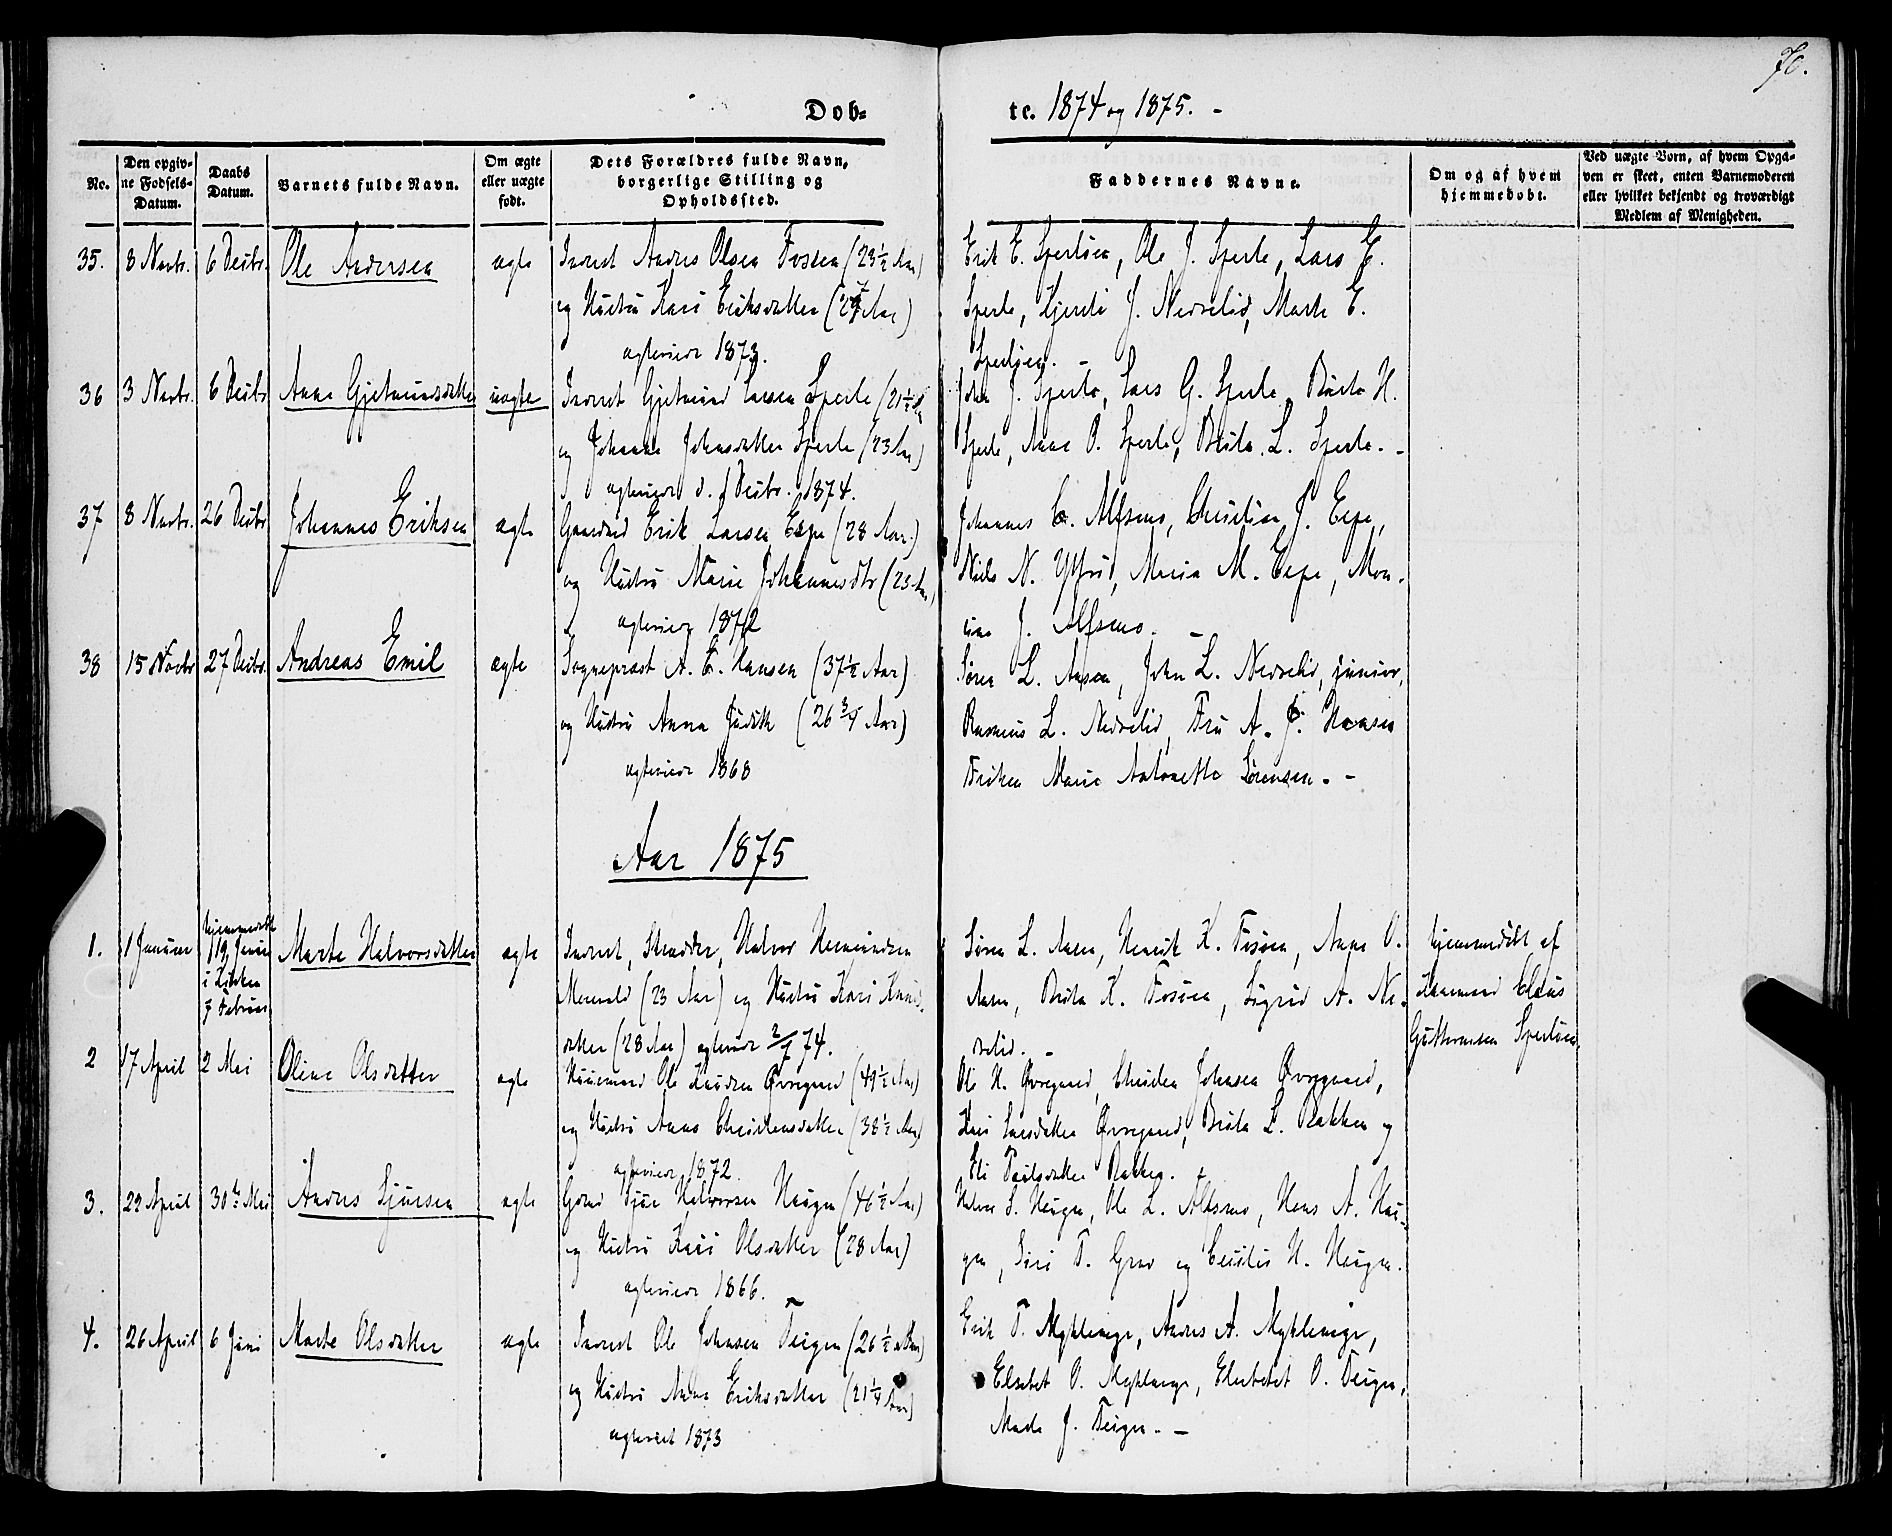 76.
Døb-
te. 1874 og 1875. -
No.
Den opgiv-
ne Fødsels-
Datum.
Daabs
Datum.
Barnets fulde Navn.
Om ægte
eller uægte
født.
Dets Forældres fulde Navn,
borgerlige Stilling og
Opholdssted.
Faddernes Navne.
Om og af hvem
hjemmedøbt.
Ved uægte Børn, af hvem Opga-
ven er skeet, enten Barnemoderen
eller hvilket bekjendt og troværdigt
Medlem af Menigheden.
35. 8 Novbr. 6 Decbr. Ole Andersen ægte Inderst Anders Olsen Fosøen (23½ Aar)
og Hustru Kari Eriksdatter (27 Aar)
ægteviede 1873.
Erik E. Sperløen, Ole J. Sperle, Lars E.
Sperle, J. Nedrelid, Marte E.
Sperløen. -
36 3 Novbr. 6 Decbr. Anna Gjetmundsdatter uægte Inderst Gjetmund Larsen Sperle (21½ Aar)
og Johanne Johnsdatter Sperle (23 Aar)
ægteviede d. 1 Decbr. 1874.
John J. Sperle, Lars G. Sperle, Brite H.
Sperle, Anne O. Sperle, Brite L. Sperle. -
37 8 Novbr. 26 Decbr. Johannes Eriksen ægte Gaardmd Erik Larsen Espe (28 Aar.)
og Hustru Marie Johannesdtr (23 Aar)
ægteviede 1872
Johannes E. Alfsmo, Christian J. Espe,
Niels N. Ytfrid, Maria M. Espe, Mon-
sine J. Alfsmo. -
38 15 Novbr 27 Decbr. Andreas Emil ægte Sognepræst A. E. Hansen (37½ Aar)
og Hustru Anna Judith (26 ¾ Aar)
ægteviede 1868
Søren L. Aasen, John L. Nedrelid, junior,
Rasmus L. Nedrelid, Fru A. J. Hansen
Frøken Marie Antonette Sørensen. -
Aar 1875
1. 1 Januar hjemmedøbt
19 Januar
i Kirken
7 Februar
Marte Halvorsdatter ægte Inderst, Skrædder, Halvor
(23 Aar) og Hustru Kari Knuds-
datter (28 Aar) ægteviede 2/7 74.
Søren L. Aasen, Henrik K. Fosøen, Anne O.
Aasen, Brite K. Fosøen, Sigrid A. Ne-
drelid. -
hjemmedøbt af
Huusmand Claus
Guttormsen Sperløen.
2 17 April 2 Mai Oline Olsdatter ægte Huusmand Ole Knudsen Øvregaard (49½ Aar)
og Hustru Anne Christensdatter (38½ Aar)
ægteviede 1872.
Ole H. Øvregaard, Christen Johnsen Øvregaard,
Kari Larsdatter Øvregaard, Brite L. Bakken og
Eli Bakken.
3. 22 April 30te Mai Anders Sjursen ægte Gbrd Sjur Halvorsen Haugen (46½ Aar)
og Hustru Kari Olsdatter (28 Aar)
ægteviede 1866.
Halvor S. Haugen, Ole L. Alfsmo, Hans A. Hau-
gen, Siri T. Grov og Cecilie H. Haugen.
4. 26 April 6 Juni Marte Olsdatter ægte Inderst Ole Johnsen Teigen (26½ Aar)
og Hustru Anne Eriksdatter (21¼ Aar)
ægteviet 1873
Erik T. Myklemyr, Anders A. Myklemyr,
Elsebet O. Myklemyr, Elisebet O. Teigen,
Marte J. Teigen. -